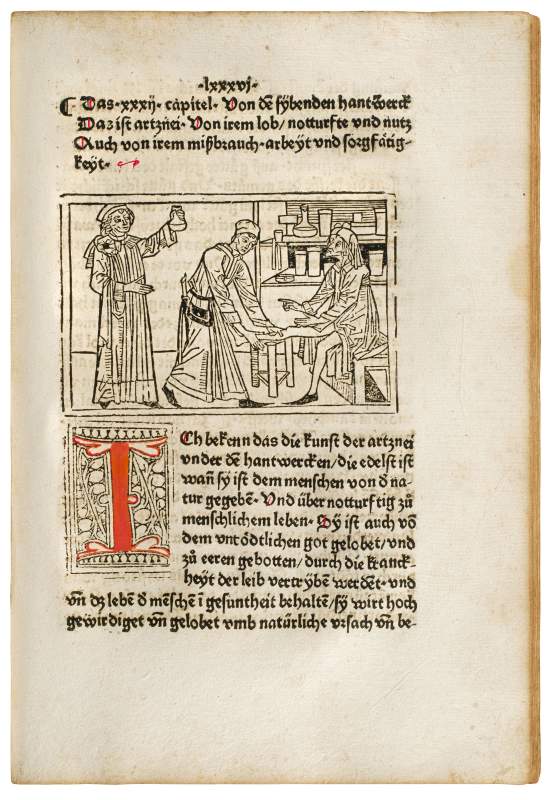 ·lxxxvj·
⸿ Das·xxxij·capitel·Von dē sybenden hantwerck
Daz ist artznei·Von irem lob/notturfte vnd nutz
Auch von irem mißbrauch·arbeyt vnd sorgfåtig-
keyt·
ICh bekenn das die kunst der artznei
vnder dē hantwercken/die edelst ist
wañ sy ist dem menschen von d̄ na-
tur gegebē·Vnd über notturftig zů
menschlichem leben·Sy ist auch vō
dem vntödtlichen got gelobet/vnd
zů eeren gebotten/durch die kranck-
heyt der leib vertrybē werdēt·vnd
vn̄ dz lebē d̄ mēschē ī gesuntheit behaltē/sy wirt hoch
gewirdiget vn̄ gelobet vmb natürliche vrsach vn̄ be-